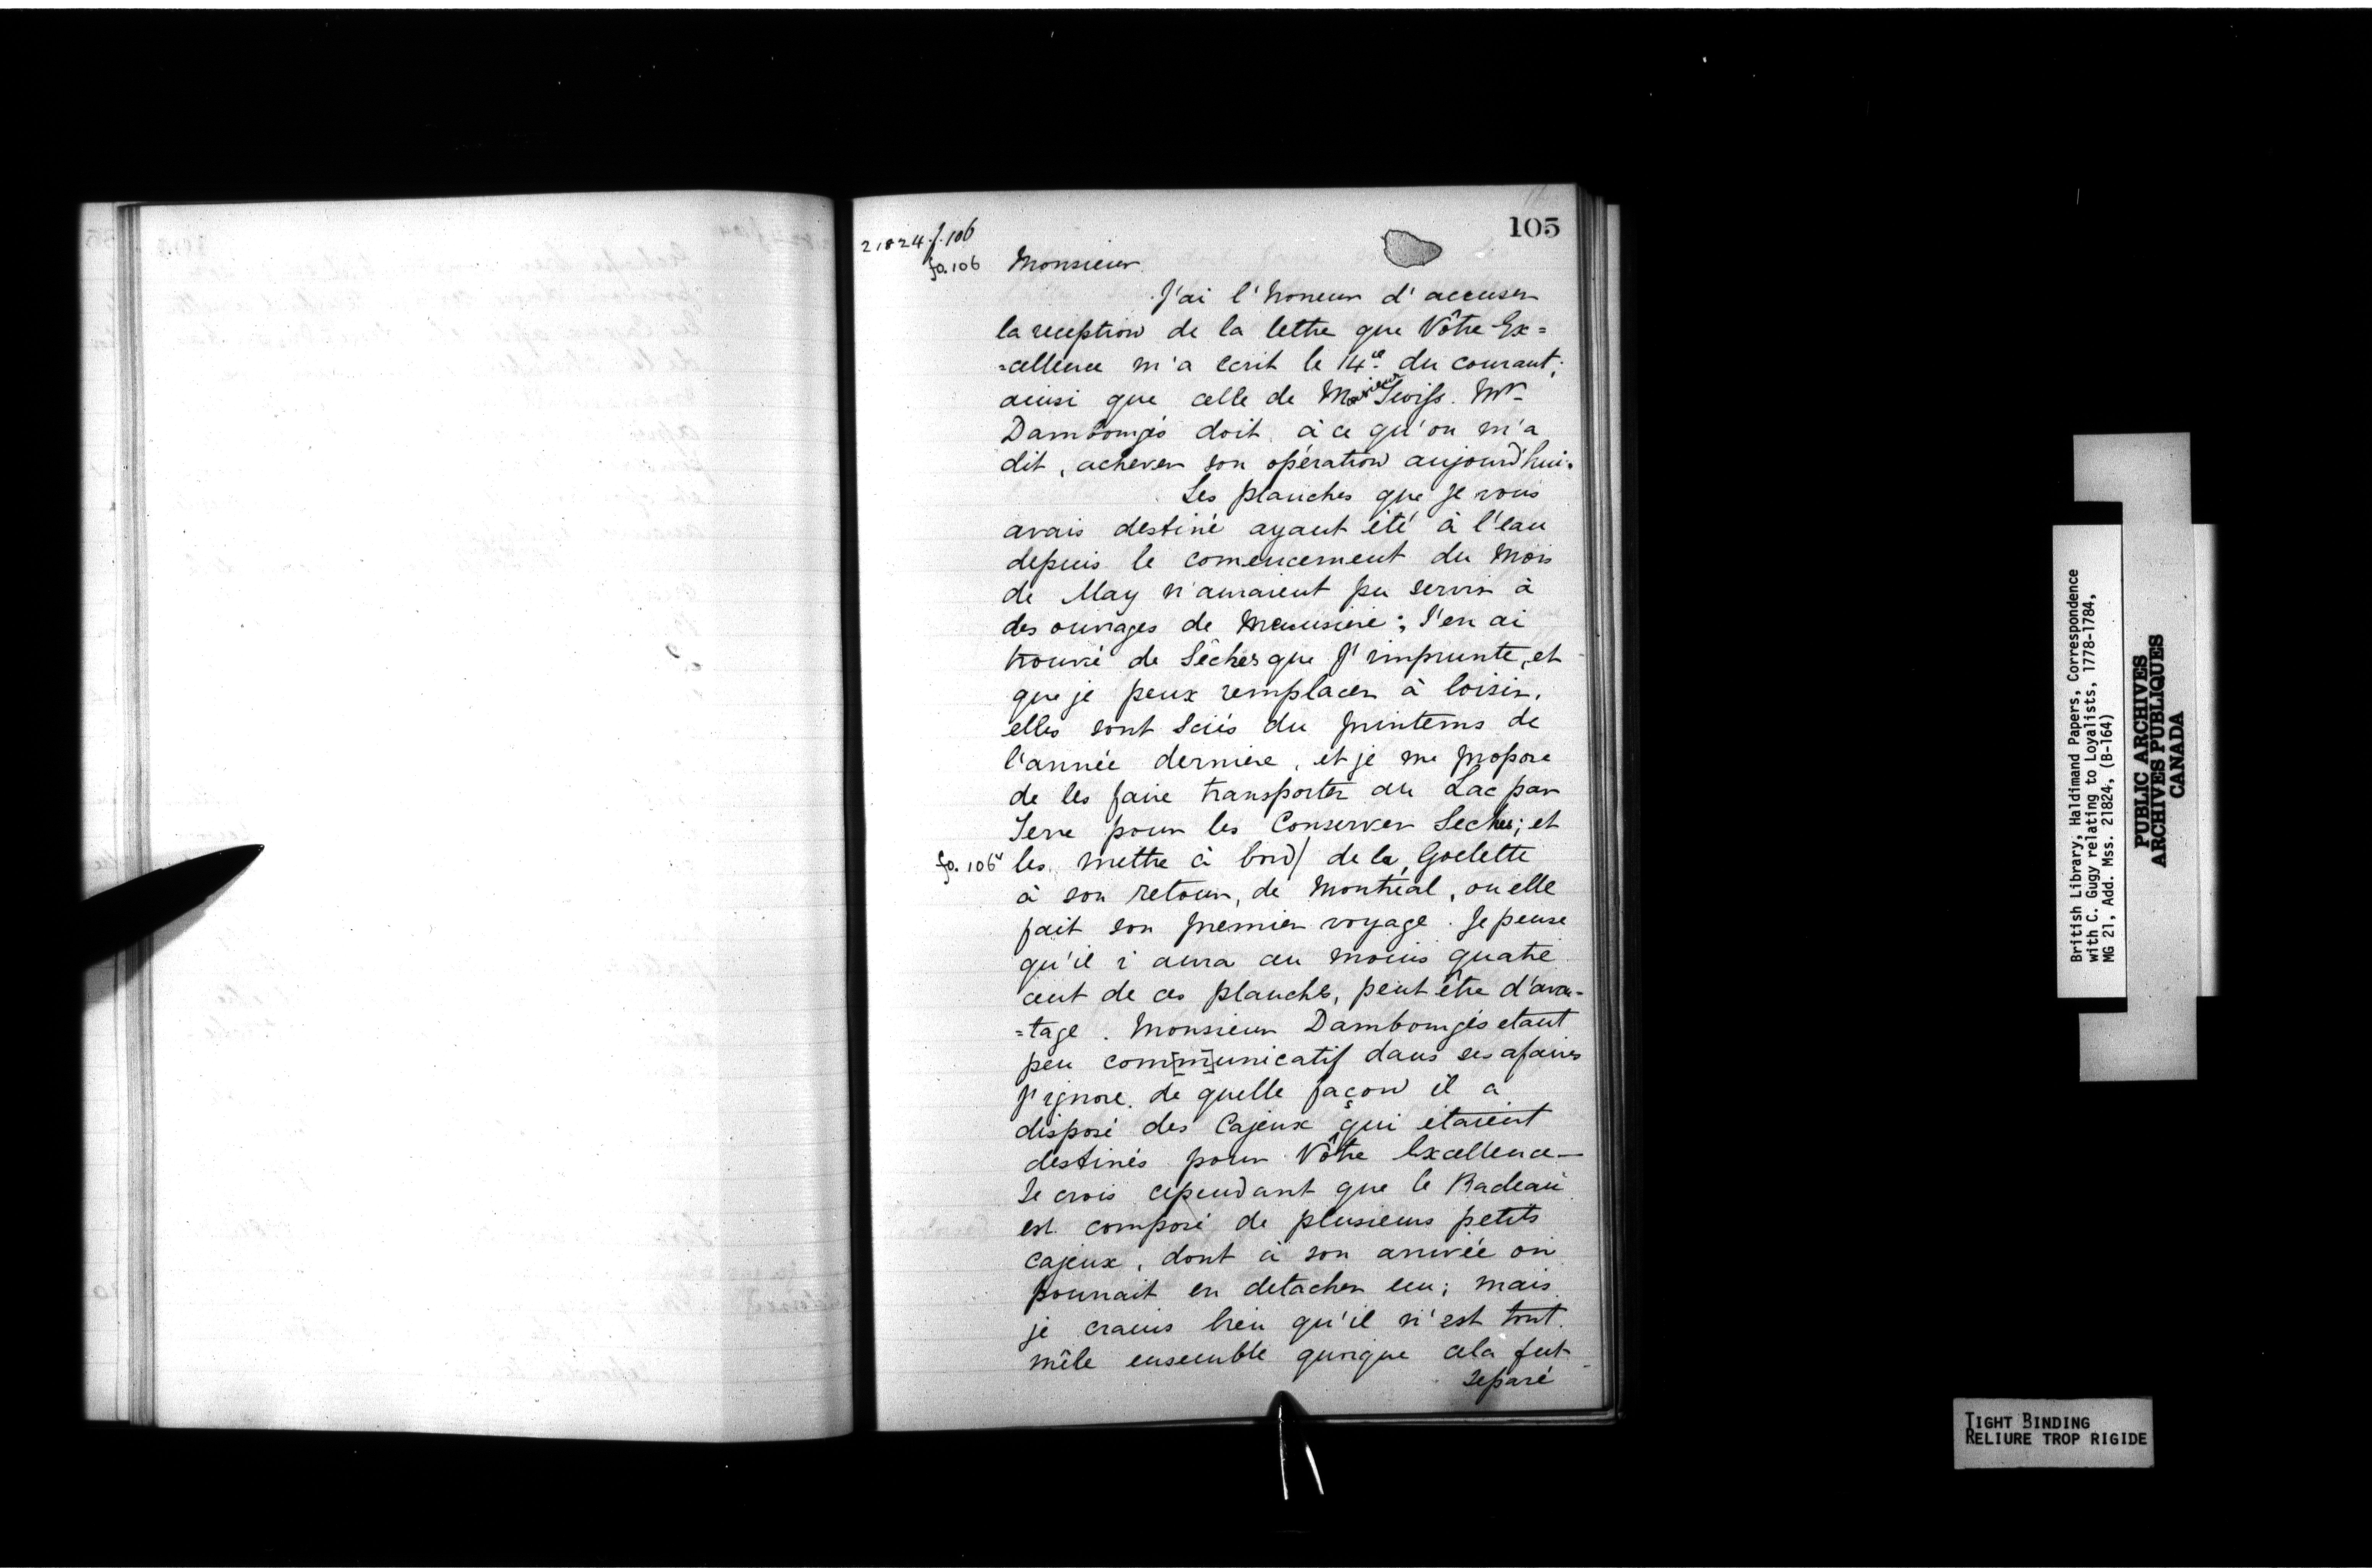 105
21824.f.106
fo.106 Monsieur
J'ai l'honeur d'accuser
la reception de la lettre que Vôtre Ex=
=cellence m'a ecrit le 14.ce du courant;
ainsi que celle de Monsieur Twifs. Mr
Dambourgés doit, à ce qu'on m'a
dit, achever son opération aujourd'hui.
Les planches que je vous
avais destiné ayant été à l'eau
depuis le comencement du Mois
de May n'auraient pu servir à
des ouvrages de Menuisiere; J'en ai
trouvé de Sêches que J'imprunte, et
que je peux remplacer à loisir.
elles sont Sciés du printems de
l'année derniere, et je me propose
de les faire transporter au Lac par
Terre pour les Conserver Seches; et
fo.106v les mettre à bord/ de la Goelette
à son retour, de Montréal, ou elle
fait son premier voyage. Je pense
qu'il i aura au moins quatre
cent de ces planches, peut être d'avan=
=tage. Monsieur Dambourgés etant
peu com[m]unicatif dans ses afaires
J'ignore de quelle façon il a
disposé des Cajeux qui étaient
destinés pour Vôtre Excellence—
Je crois cependant que le Radeau
est composé de plusieurs petits
cajeux, dont à son arrivée on
pourrait en detacher un; mais
je crains bien qu'il n'est tout
mêle ensemble quoique cela fut
separé
British Library, Haldimand Papers, Correspondence
with C. Gugy relating to Loyalists, 1778-1784,
MG 21, Add. Mss. 21824, (B-164)
PUBLIC ARCHIVES
ARCHIVES PUBLIQUES
CANADA
TIGHT BINDING
RELIURE TROP RIGIDE